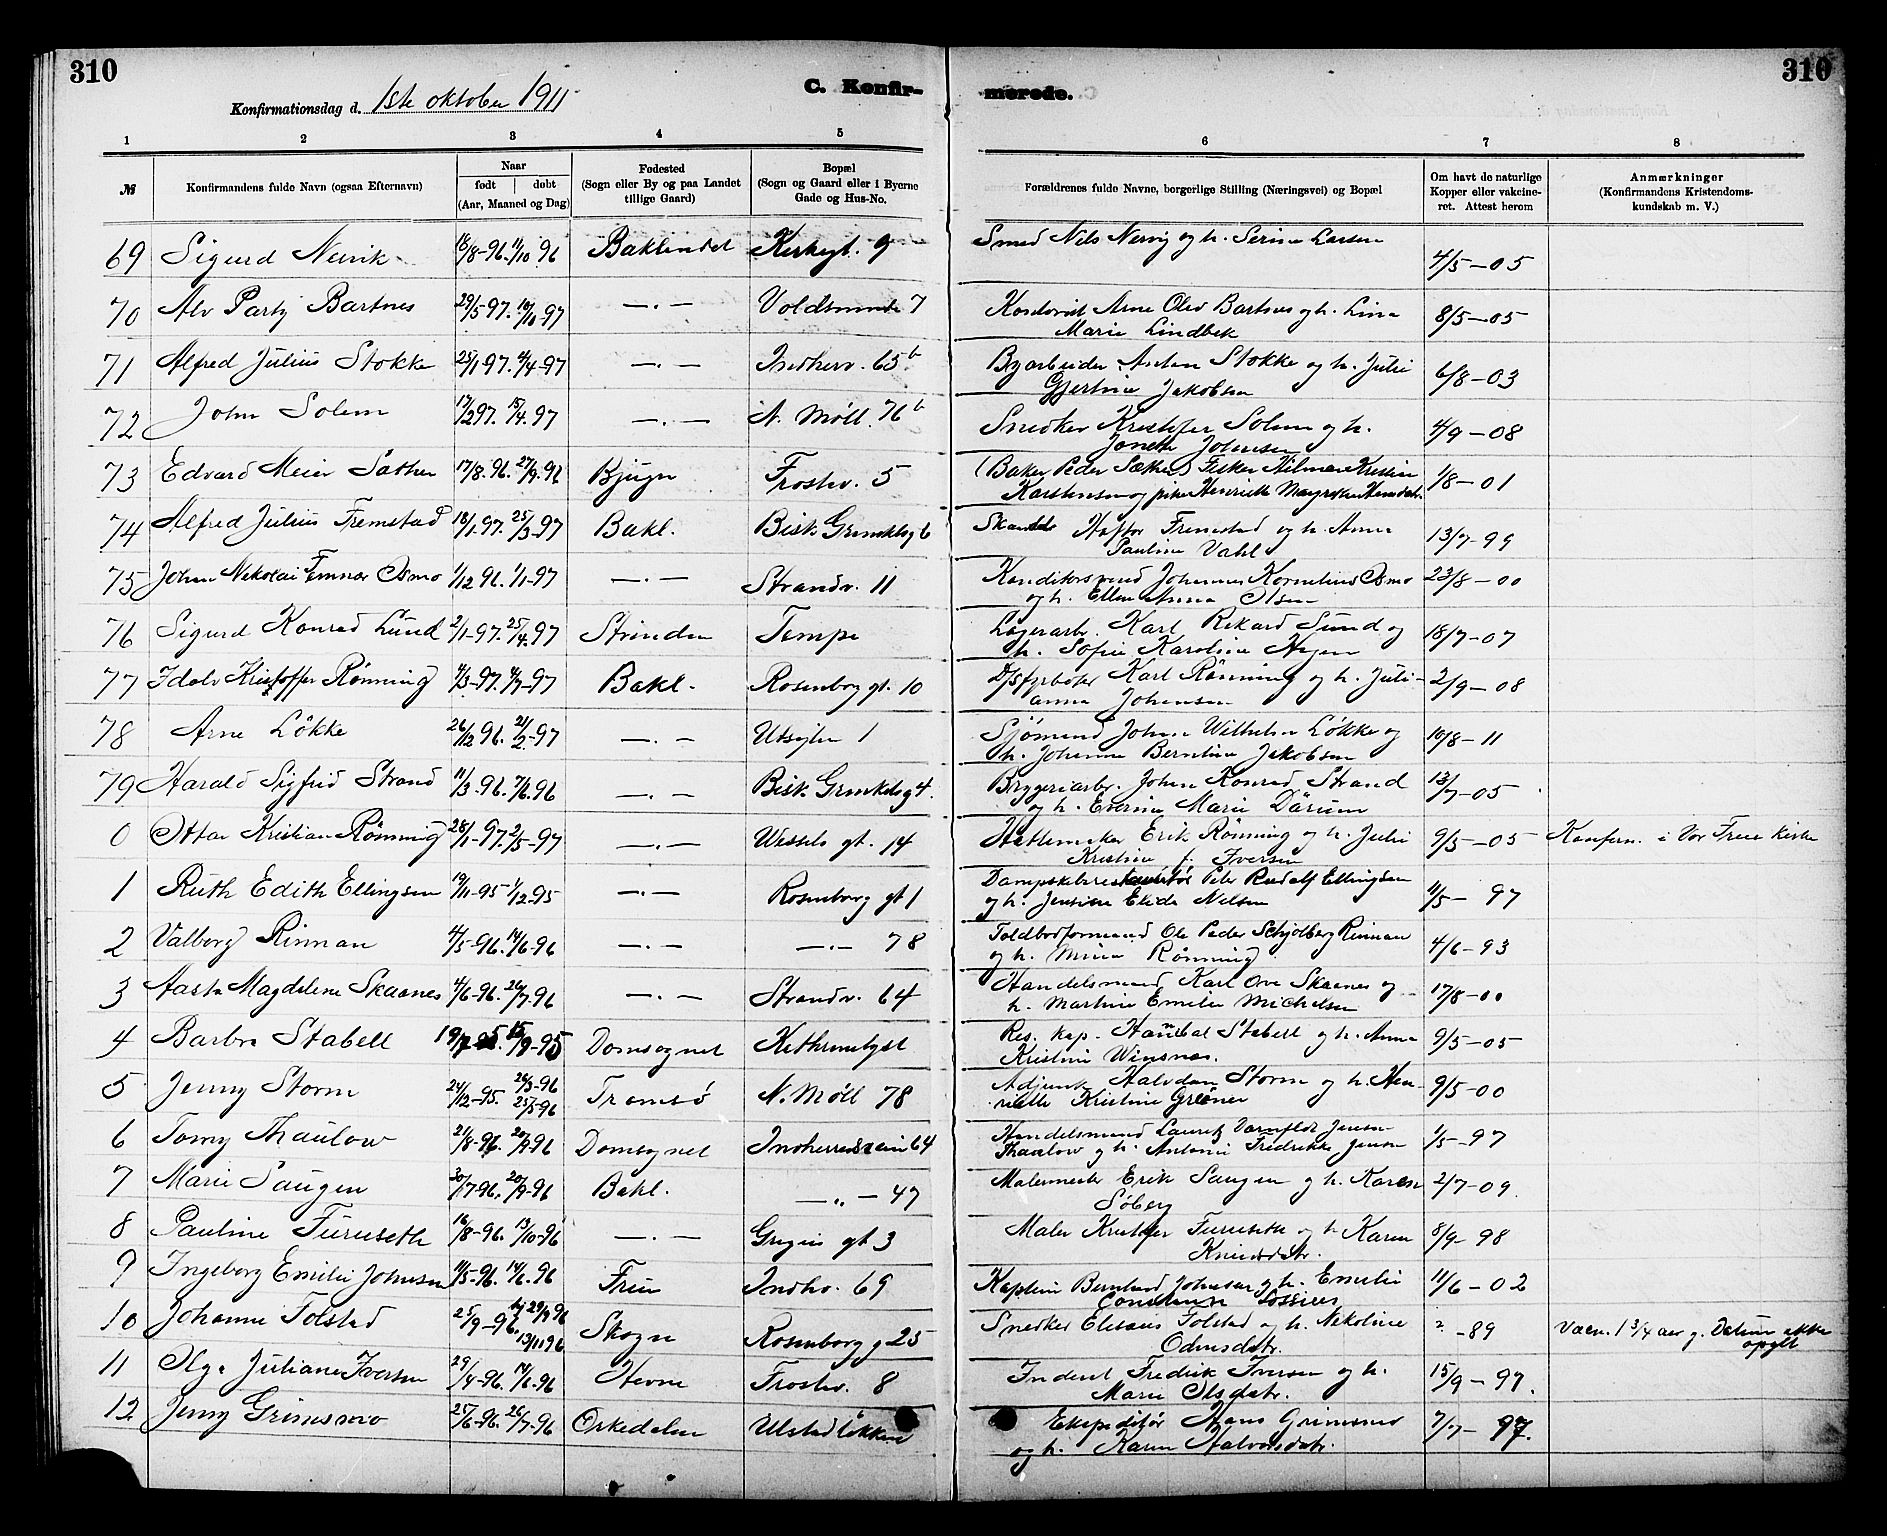 310
310
Konfirmationsdag d. 1ste oktober 1911
C. Konfir-
merede.
1 2 3 4 5 6 7 8
№
Konfirmandens fulde Navn (ogsaa Efternavn)
Naar
født | døbt
(Aar, Maaned og Dag)
Fødested
(Sogn eller By og paa Landet
tillige Gaard)
Bopæl
(Sogn og Gaard eller i Byerne
Gade og Hus-No.
Forældrenes fulde Navne, borgerlige Stilling (Næringsvei) og Bopæl
Om havt de naturlige
Kopper eller vakcine-
ret. Attest herom
Anmærkninger
(Konfirmandens Kristendoms-
kundskab m. V.)
69 Sigurd Nervik 18/8-96. 11/10 96 Baklandet Kirkegt. 9 Smed Nils Nervig og h. Serine Larsen 4/5-05
70 Alv Party Bartnes 29/5-97. 10/10-97 —.— Voldsminde 7 Arne Olav Bartnes og h. Lina
Marie Lindbek 8/5-05
71 Alfred Julius Stokke 25/1 97. 4/4-97 —.— Indherv. 65b Byarbeider Anton Stokke og h. Julie
Gjertine Jakobsen 6/8-03
72 John Solem 17/2 97. 15/4. 97 —.— N. Möll. 76b Snedker Kristofer Solem og h.
Johnsen 4/9-08
73 Edvard Meier Sæther 17/8. 96. 27/9. 96 Bjugn Frostv. 5 (Baker Peder Sæther) Fisker Hilmar Kristian
Karstensen og pike Henriette 1/8-01
74 Alfred Julius Fremstad 18/1. 97. 25/3-97 Bakl. Bisk. Grimkelsg 6 Haftor Fremstad og h. Anna
Pauline Vahl 13/7-99
75 Johan Nikolai Osmo 1/12 96. 1/1-97 —.— Strandv. 11 Konditorsvend Johannes Kornelius Osmo
og h. Ellen Anna Olsen 23/8-00
76 Sigurd Konrad Lund 2/1-97. 25/4. 97 Strinden Tempe Lagerarb. Karl Rikard Lund og
h. Sofie Karoline 18/7-07
77 Idolv Kristoffer Rönning 4/3-97. 4/7-97 Bakl. Rosenborg gt. 10 D/sfyrböter Karl Rönning og h. Juli-
anna Johansen 2/9-08
78 Arne Lökke 26/12 96. 21/2-97 —.— Utsigten 1 Sjömand Johan Wilhelm Lökke og
h. Johanne Berntine Jakobsen 10/8-11
79 Harald Sigfrid Strand 11/3-96. 7/6. 96 —.— Bisk. Grimkelsg 4. Bryggeriarb. Johan Konrad Strand
og h. Marie Dårum 13/7-05
0 Ottar Kristian Rönning 28/1-97. 2/5-97 —.— Wessels gt. 14 Hattemaker Erik Rönning og h. Julie
Kristine f. Iversen 9/5-05 Konfirm. i Vor Frue Kirke
1 Ruth Edith Ellingsen 19/11-95 1/12-95 —.— Rosenborg gt 1 Peter Rudolf Ellingsen
og h. Jensine Elida Nilsen 11/5-97
2 Valborg Rinnan 4/5-96. 14/6-96 —.— —.— 78 Toldbodformand Ole Peder Schjölberg Rinnan
og h. Mina Rönning 4/6-93
3 Aasta Magdelene Skaanes 4/6-96. 26/7-96 —.— Strandv. 64 Handelsmand Karl Ove Skaanes og
h. Martine Emelie Michelsen 17/8-00
4 Barbra Stabell 15/9-95 Domsognet Res. kap. Hanibal Stabell og h. Anna
Kristine Winsnes. 9/5-05
5 Jenny Storm 24/12-95. 26/3-96
25/5-96 Tromsö N. Möll 78 Adjunkt Halvdan Storm og h. Hen-
riette Kristine Gröner 9/5-00
6 Tomy Thaulow 21/8-96. 20/9-96 Domsognet Indherredsveien 64 Handelsmand Lauritz Jensen
Thaulow og h. Antonie Fredrikke Jensen 1/5-97
7 Marie Saugen 30/7-96. 20/9-96 Bakl. —„— 47 Malermester Erik Saugen og h. Karen
Söberg 2/7-09.
8 Pauline Furuseth 16/8-96. 13/10-96 —.— gt 3 Maler Kristofer Furuseth og h Karen
Knudsdatr. 8/9-98
9 Ingeborg Emilie Johnsen 11/5-96. 14/6. 96 Indhv. 69 Kaptein Bernhard Johnsen og h. Emelie
11/6-02
10 Johanne Tolstad 25/9-96. 29/9 96
13/11 96 Skogn Rosenborg g 25 Snedker Eliseus Tolstad og h. Nikoline
Odinsdatr. ?-89 Vacn. 1 3/4 aar g. Datum ikke
opgit
11 Olga Juliane Iversen 29/4-96. 14/6-96 Hevne Frostv. 8 Fredrik Iversen og h.
Marie Olsdatr. 15/9-97.
12 Jenny Grimsmo 25/6-96. 26/7-96 Orkedalen Ulstadlökken Ekspeditör Hans Grimsmo
og h. Karen Halvorsdatr. 7/7-97.